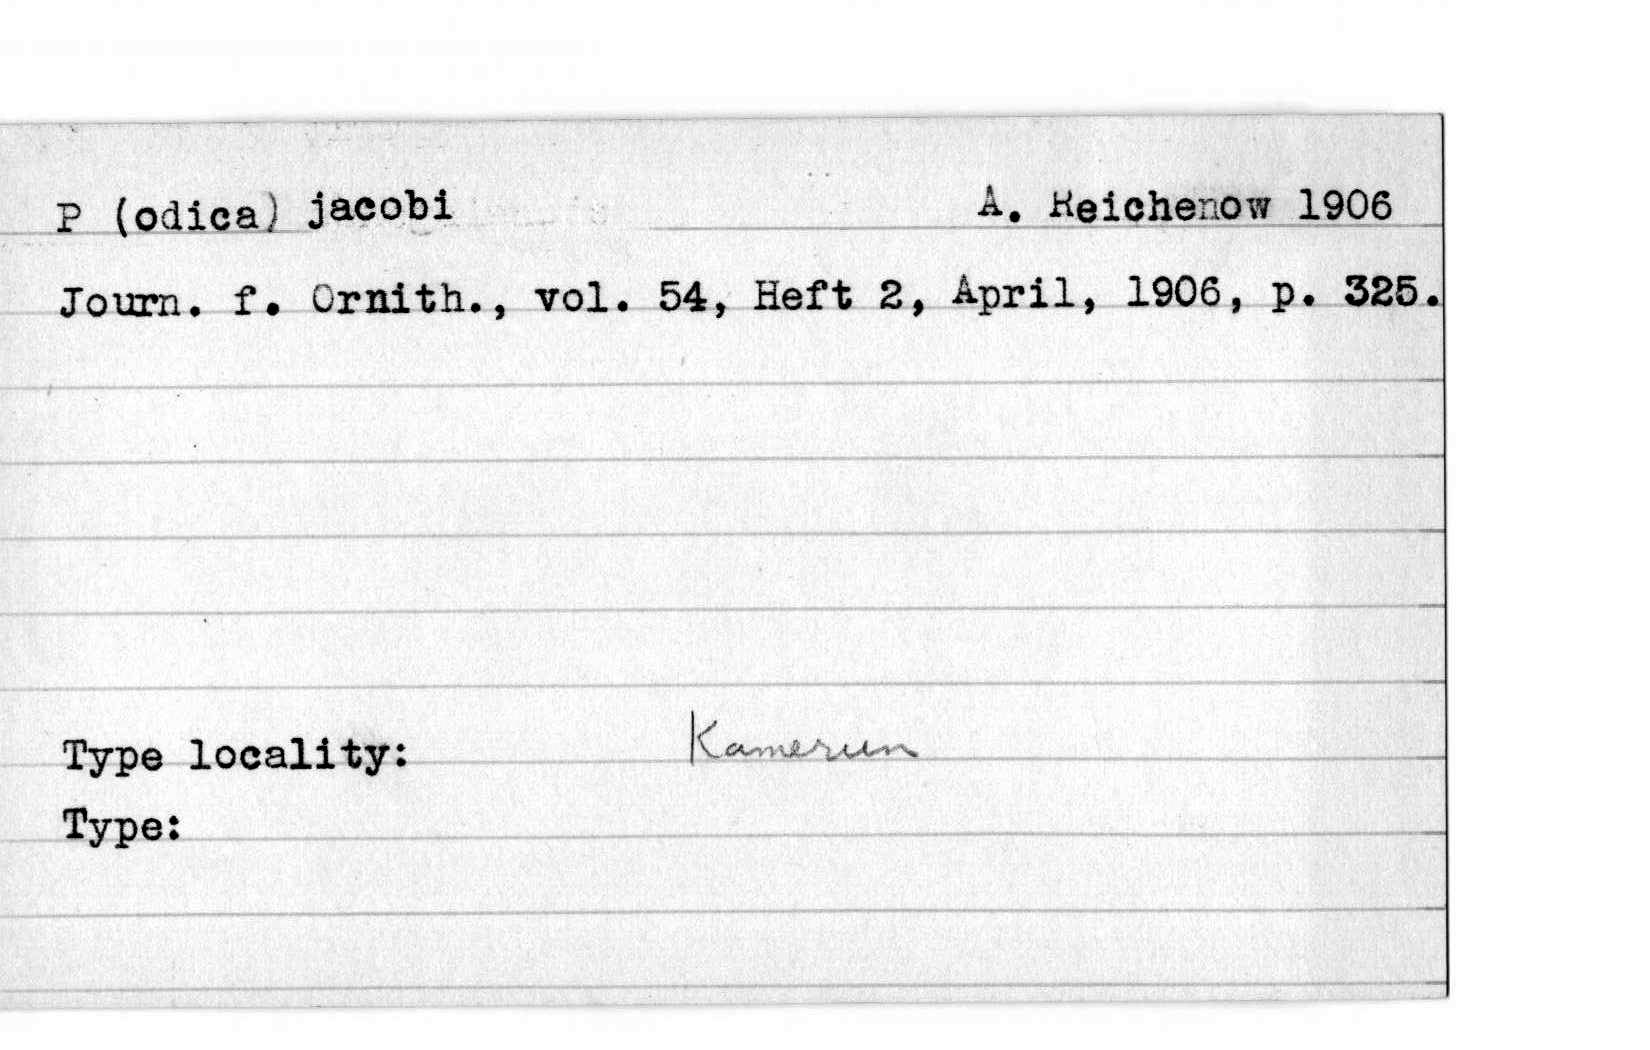 P (odica) jacobi A. Reichenow 1906
Journ. f. Ornith., vol. 54, Heft 2, April, 1906, p. 325.
Type locality: Kamerun
Type: